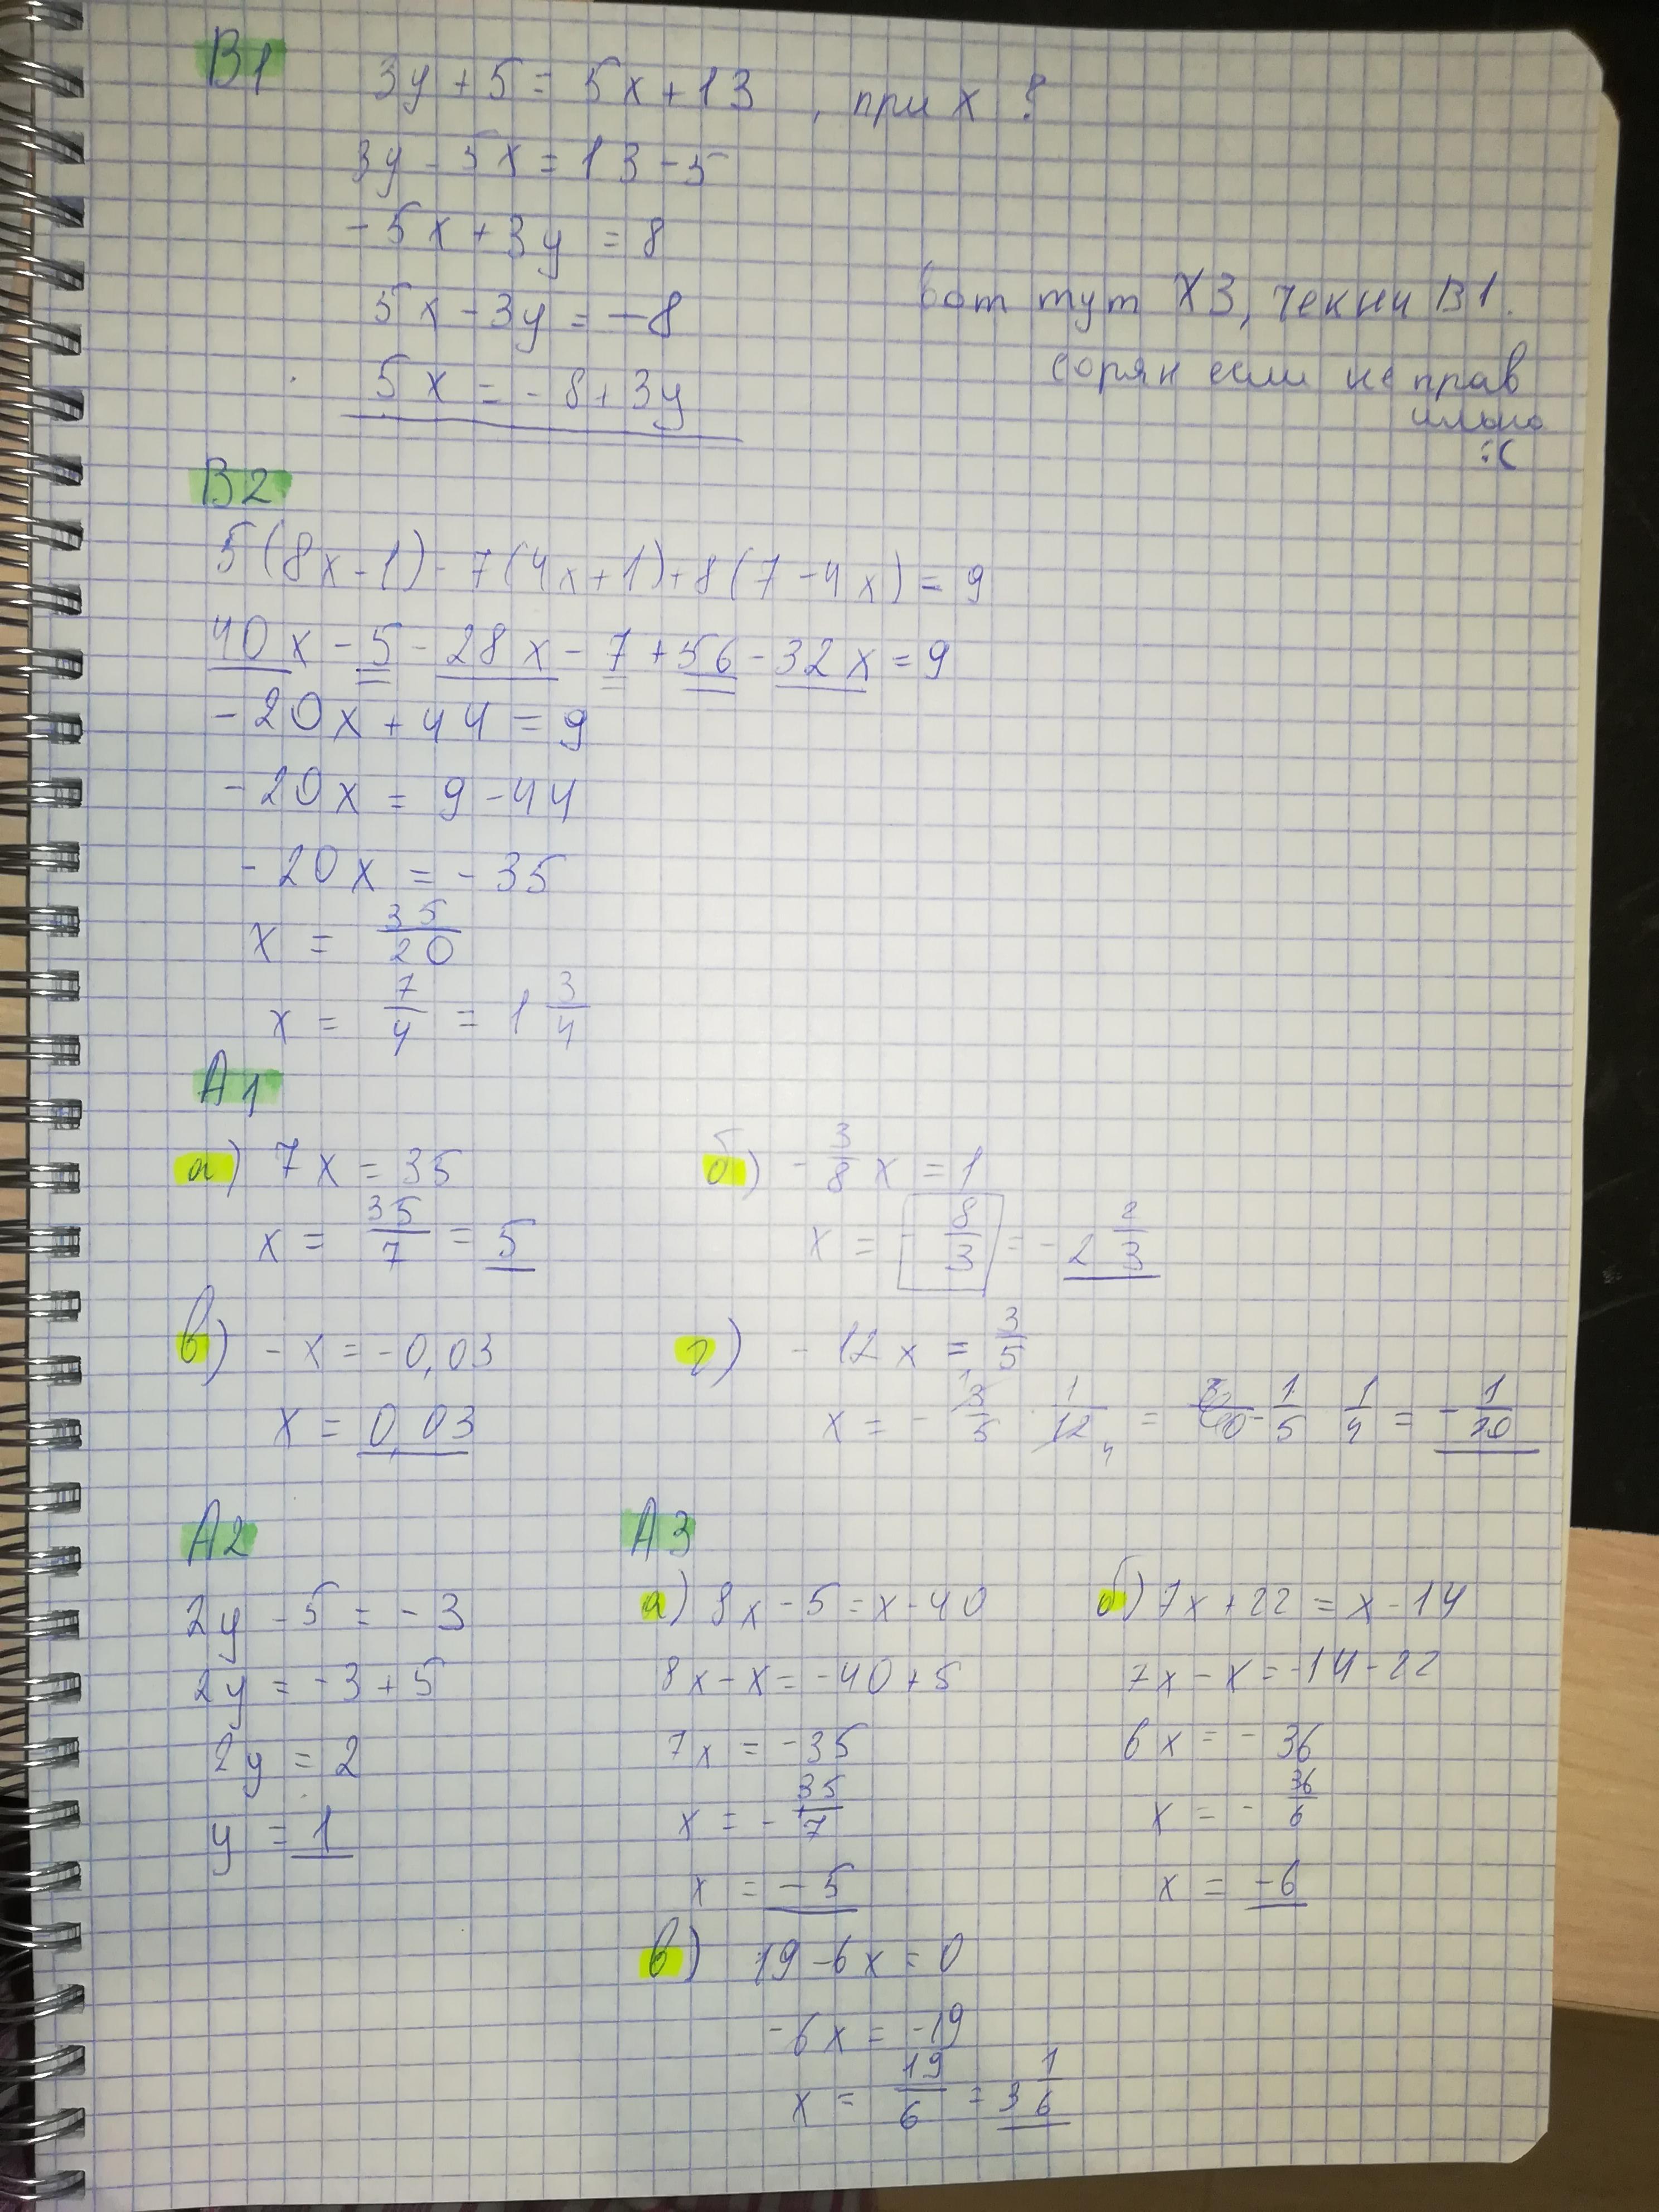 В1 3y + 5 = 5x + 13 , при x ?
3y - 5x = 13 - 5
-5x + 3y = 8
5x - 3y = -8
5x = -8 + 3y
вот тут ХЗ, чекни В1.
сорян если не прав
ильно
:(
В2
5(8x - 1) - 7(4x + 1) + 8(7 - 4x) = 9
40x - 5 - 28x - 7 + 56 - 32x = 9
-20x + 44 = 9
-20x = 9 - 44
-20x = -35
x = 35/20
x = 7/4 = 1 3/4
А1
а) 7x = 35
x = 35/7 = 5
б) -3/8 x = 1
x = -8/3 = -2 2/3
в) -x = -0,03
x = 0,03
г) -12x = 3/5
x = -3/5 · 1/12 = - 1/5 1/4 = -1/20
А2
2y - 5 = -3
2y = -3 + 5
2y = 2
y = 1
А3
а) 8x - 5 = x - 40
8x - x = -40 + 5
7x = -35
x = -35/7
x = -5
б) 7x + 22 = x - 14
7x - x = -14 - 22
6x = -36
x = -36/6
x = -6
в) 19 - 6x = 0
-6x = -19
x = 19/6 = 3 1/6